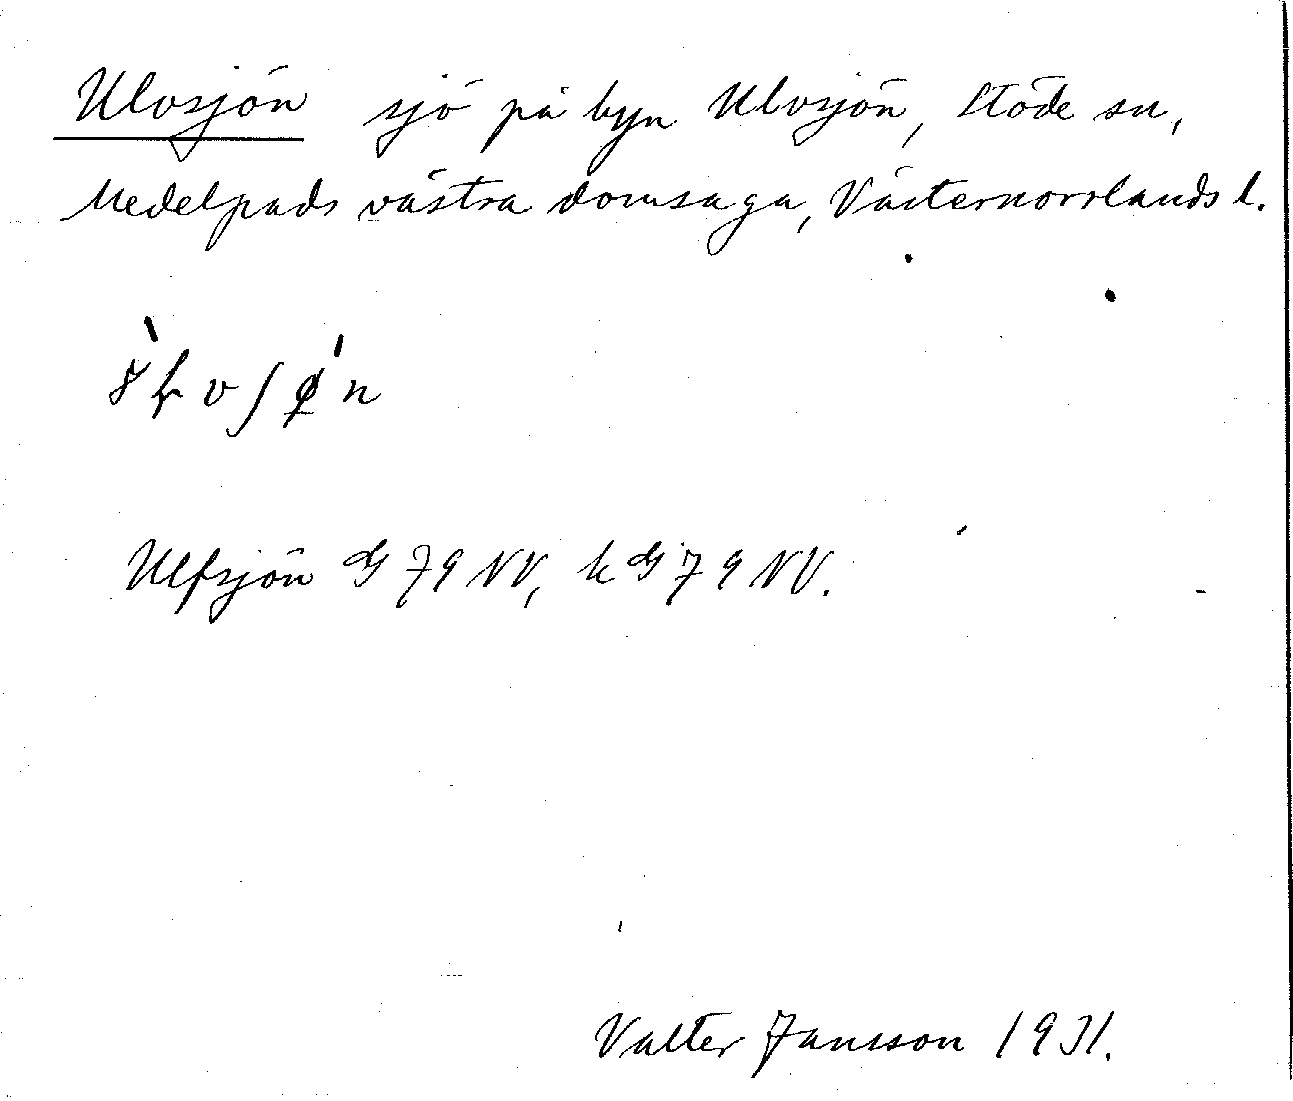 Ulvsjön sjö på byn Ulvsjön, Stöde sn,
Medelpads västra domsaga, Västernorrlands l.
Ulfsjön G 79 NV, k G 79 NV.
Valter Jansson 1931.